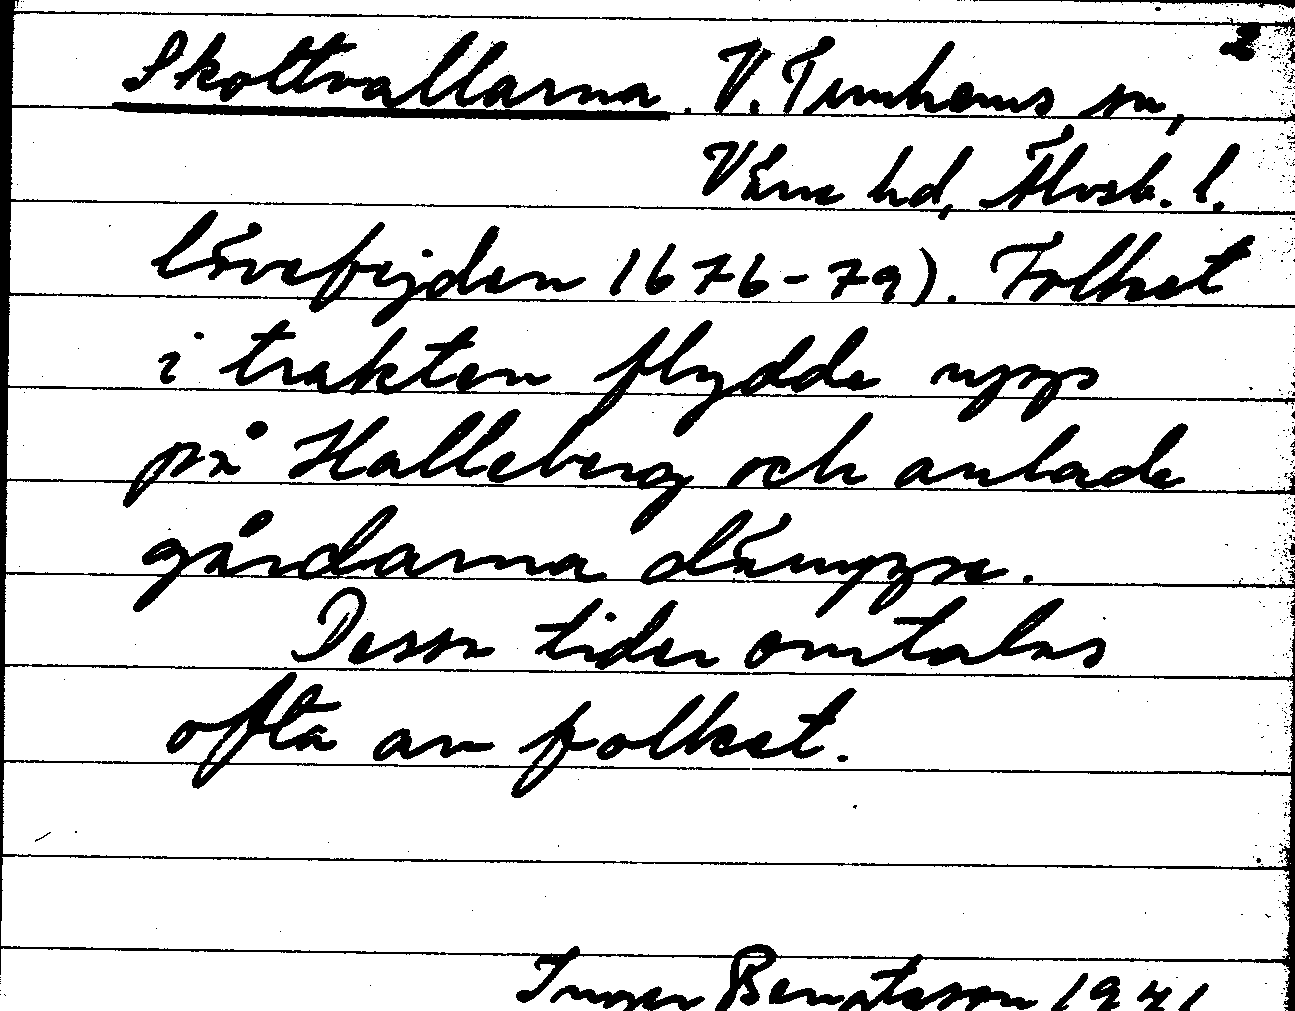 2
Skottvallarna. V. Tunhems sn,
Väne hd, Älvsb. l.
lövefejden 1676-79). Folket
i trakten flydde upp
på Halleberg och anlade
gårdarna däruppe.
Dessa tider omtalas
ofta av folket.
Inger Bengtsson 1941